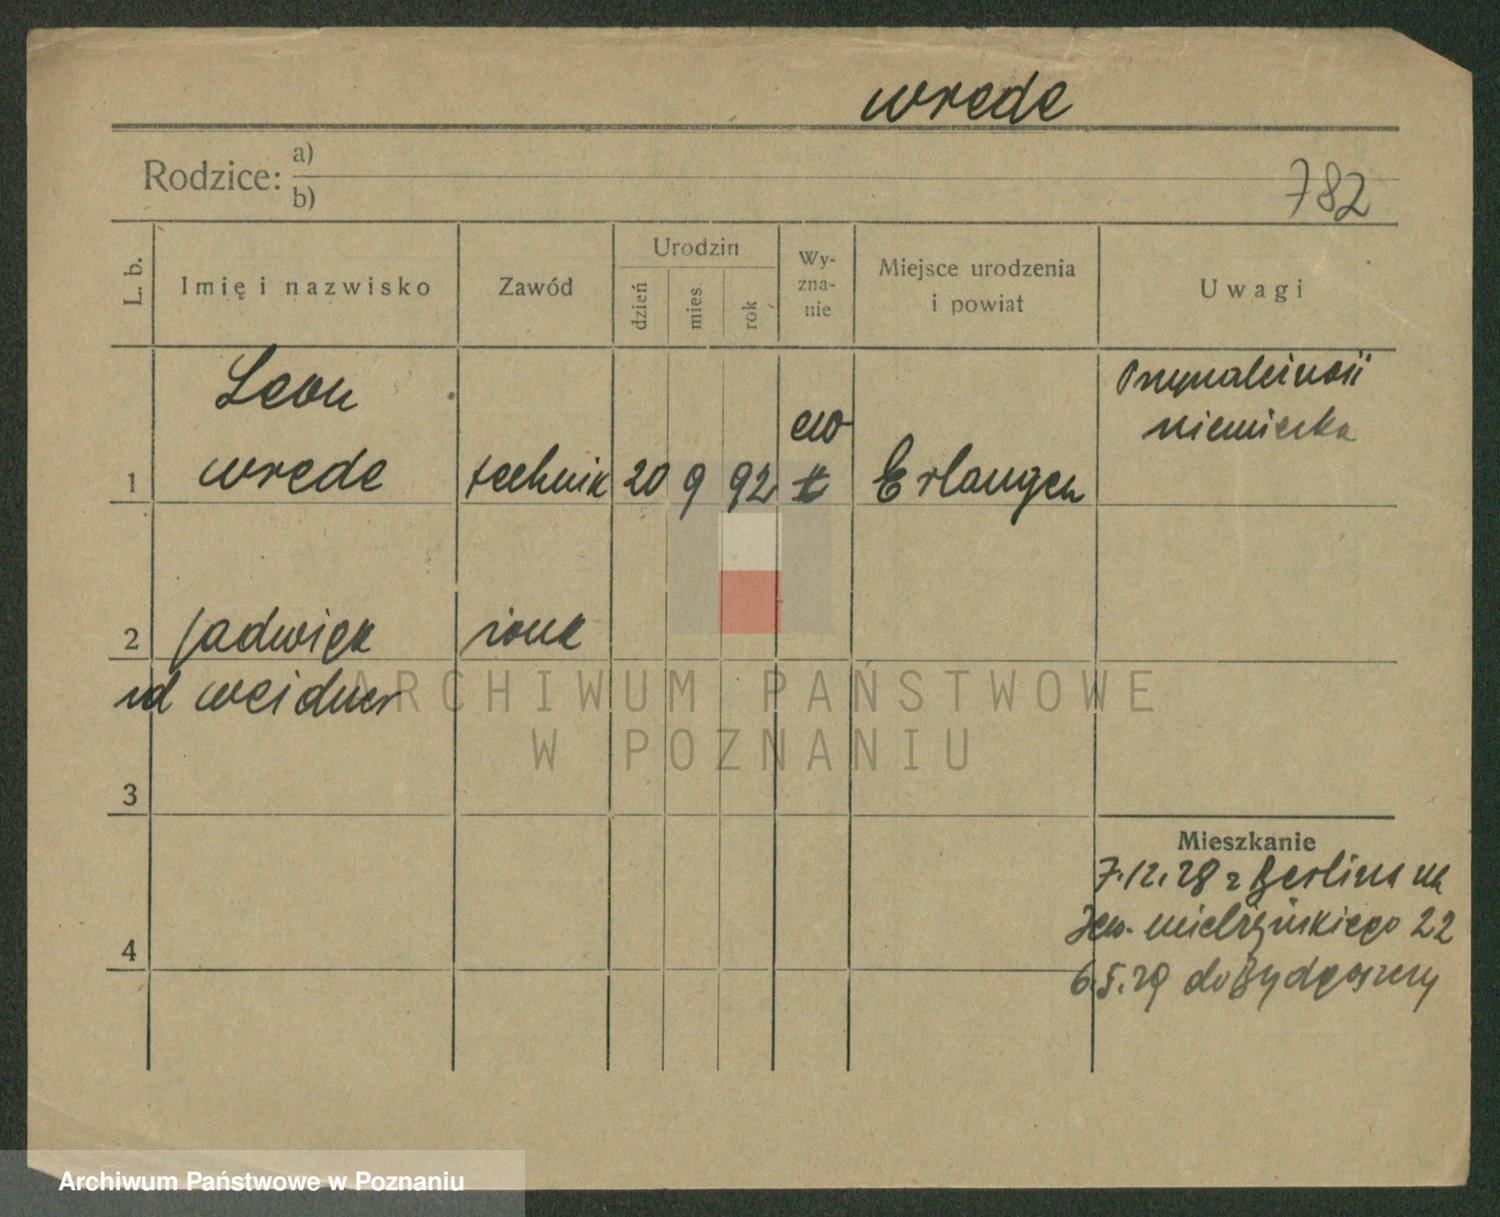 wrede
Rodzice: a)
b)
782
L. b.
Imię i nazwisko
Zawód
Urodzin
dzień
mies.
rok
Wy-
zna-
nie
Miejsce urodzenia
i powiat
Uwagi
Leon
wrede
1
technik
20
9
92
Erlangen
niemiecka
2
jadwiga
żona
weidner
ARCHIWUM PAŃSTWOWE
W POZNANIU
3
Mieszkanie
7.12.28 z Berlina na
mielżyńskiego 22
4
6.5.29 do Bydgoszczy
Archiwum Państwowe w Poznaniu